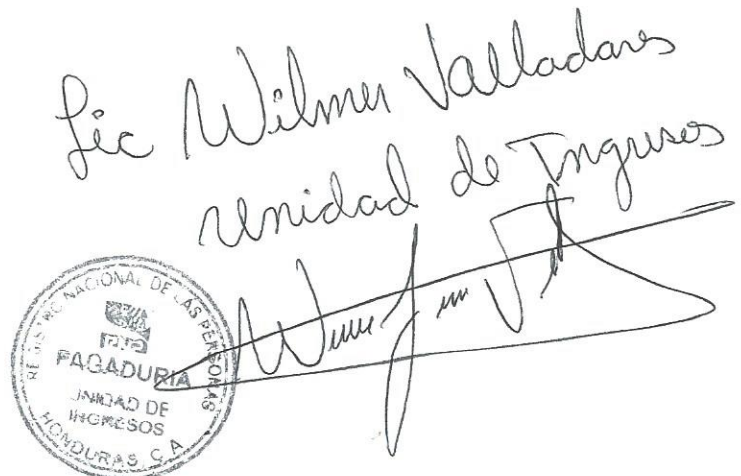 Lic Wilmer Valladares
Unidad de Ingresos
REGISTRO NACIONAL DE LAS PERSONAS
PAGADURIA
UNIDAD DE
INGRESOS
HONDURAS, C.A.